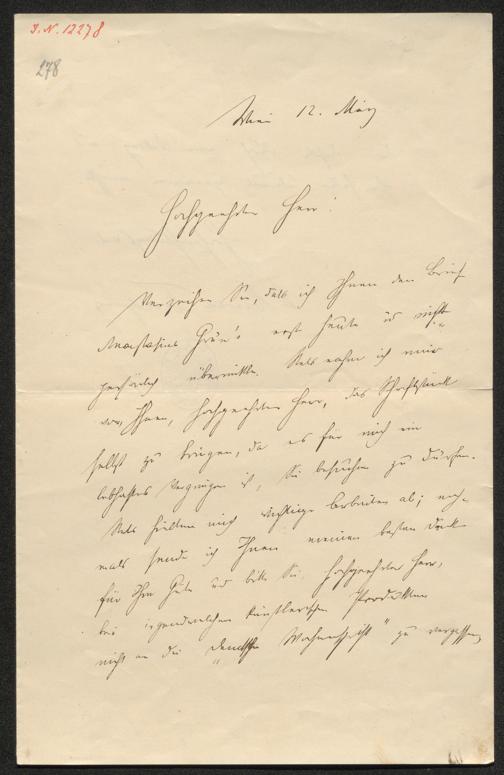 J.N. 12278
278
Wien 12. März
Hochgeehrter Herr!
Verzeihen Sie, daß ich Ihnen den Brief
Anastasius Grün's erst heute und nicht
persönlich übermittle. Stets nahm ich mir
vor, Ihnen, hochgeehrter Herr, das Schriftstück
selbst zu bringen, da es für mich ein
lebhaftes Vergnügen ist, Sie besuchen zu dürfen.
Stets hielten mich Arbeiten ab; noch-
mals sende ich Ihnen meinen besten Dank
für Ihre Güte und bitte Sie, hochgeehrter Herr,
bei irgendwelchen künstlerischen Produkten
nicht an die „Deutsche Wochenschrift" zu vergessen